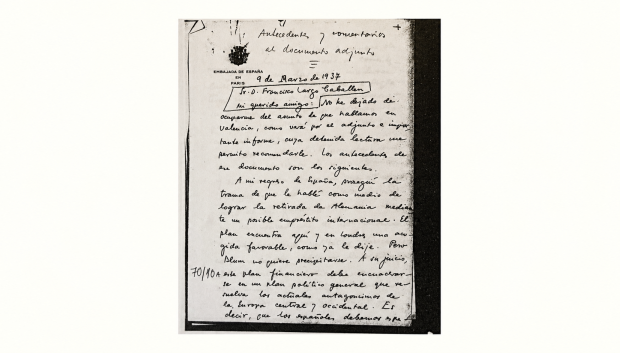 Antecedentes y comentarios +
al documento adjunto
EMBAJADA DE ESPAÑA
EN
PARIS
9 de Marzo de 1937
Sr. D. Francisco Largo Caballero
Mi querido amigo: No he dejado de
ocuparme del asunto de que hablamos en
Valencia, como verá por el adjunto e impor-
tante informe, cuya detenida lectura me
permito recomendarle. Los antecedentes de
ese documento son los siguientes.
A mi regreso de España, proseguí la
trama de que le hablé como medio de
lograr la retirada de Alemania median-
te un posible empréstito internacional. El
plan encuentra aquí y en Londres una aco-
gida favorable, como ya le dije. Pero
Blum no quiere precipitarse. A su juicio,
70/90A este plan financiero debe encuadrar-
se en un plan político general que re-
suelva los actuales antagonismos de
la Europa central y occidental. Es
decir, que los españoles debemos espe